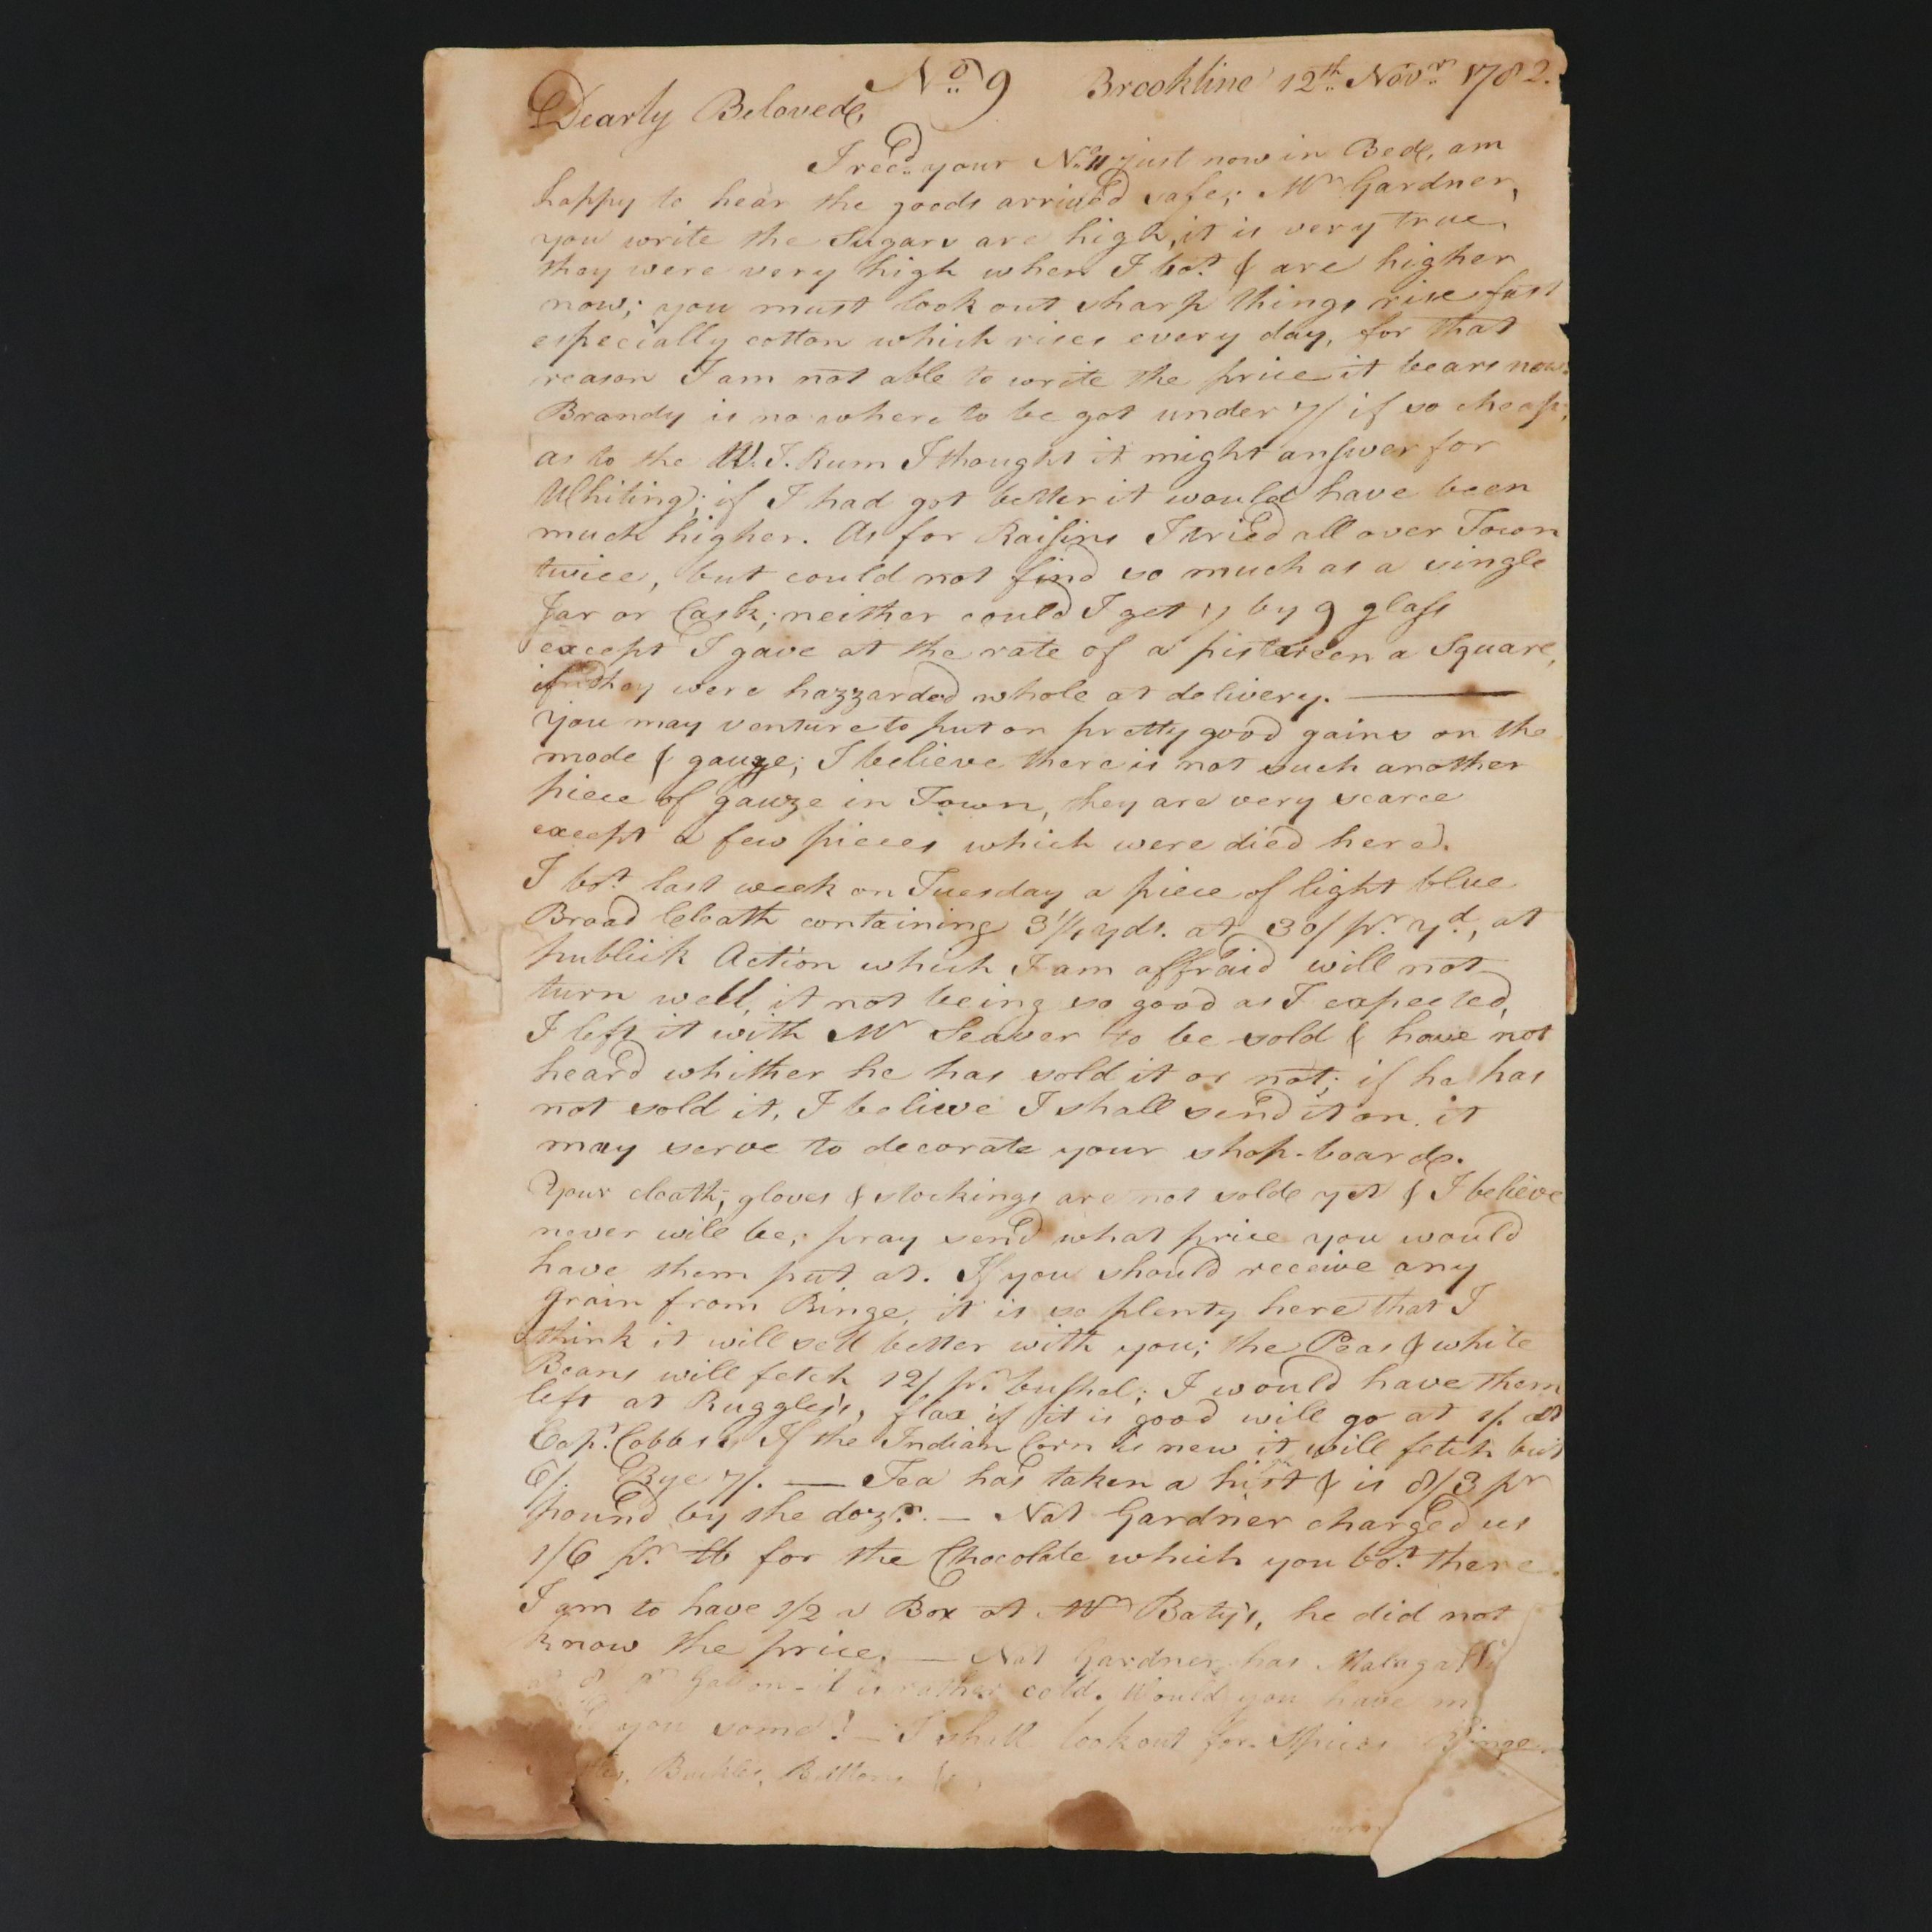 No. 9 Brookline 12th. Novr. 1782.
Dearly Beloved,
I recd. your No. 11 just now in Bed, am
happy to hear the goods arrived safe; Mr Gardner,
you write the Sugars are high, it is very true,
they were very high when I bot. & are higher
now; you must look out sharp things rise fast
especially cotton which rises every day, for that
reason I am not able to write the price it bears now.
Brandy is no where to be got under 7/ if so cheap;
as to the W. I. Rum I thought it might answer for
Whiting; if I had got better it would have been
much higher. As for Raisins I tried all over Town
twice, but could not find so much as a single
Jar or Cask; neither could I get 7 by 9 glass
except I gave at the rate of a pistereen a Square,
if they were hazzarded whole at delivery. —
You may venture to put on pretty good gains on the
mode & gauze; I believe there is not such another
piece of gauze in Town, they are very scarce
except a few pieces which were died here.
I bot. last week on Tuesday a piece of light blue
Broad Cloath containing 3 1/4 yds. at 30/ pr. yd., at
publick Action which I am affraid will not
turn well, it not being so good as I expected,
I left it with Mr Seaver to be sold & have not
heard whither he has sold it or not; if he has
not sold it, I believe I shall send it on. it
may serve to decorate your shop-board.
Your cloath, gloves & stockings are not solde yet & I believe
never will be; pray send what price you would
have them put at. If you should receive any
grain from Binge, it is so plenty here that I
think it will sell better with you; the Peas & white
Beans will fetch 12/ pr. bushel; I would have them
left at Ruggles's, flax if it is good will go at 1/. at
Capt. Cobbs's. If the Indian Corn is new it will fetch but
6/. Rye 7/. — Tea has taken a hist & is 8/3 pr
pound by the dozn. — Nat Gardner charged us
1/6 pr. lb for the Chocolate which you bot. there.
I am to have 1/2 a Box at Mr Baty's, he did not
know the price. — Nat Gardner has Malaga
pr Gallon - it is rather cold. Would you have m
you some? — I shall look out for Spices Binge
Buckles, Buttons &c,